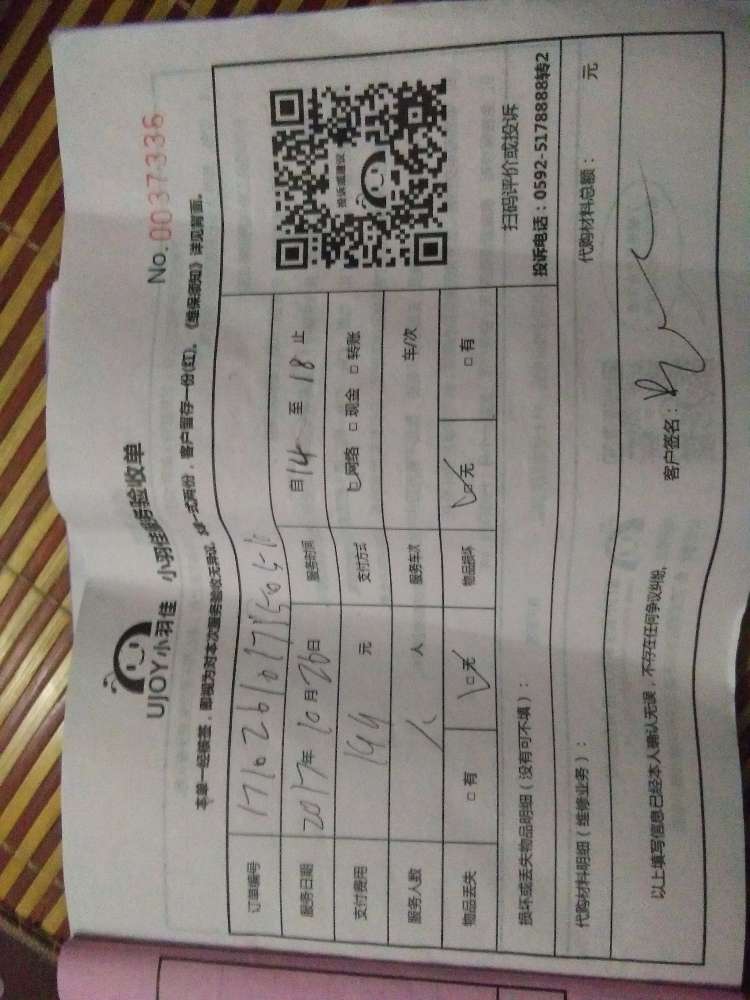 UJOY小羽佳 小羽佳服务验收单
No. 0037336
本单一经核签，即视为对本次服务验收无异议，一式两份，客户留存一份(红)。《维保须知》详见背面。
订单编号
服务日期 2017年10月26日 服务时间 自14至18止
支付费用 199元 支付方式 网络 □现金 □转账
服务人数 人 服务车次 车/次
物品丢失 □有 □无 物品损坏 □无 □有
投诉或建议
扫码评价或投诉
投诉电话：0592-5178888转2
损坏或丢失物品明细（没有可不填）：
代购材料明细（维修业务）： 代购材料总额： 元
以上填写信息已经本人确认无误，不存在任何争议纠纷。 客户签名：